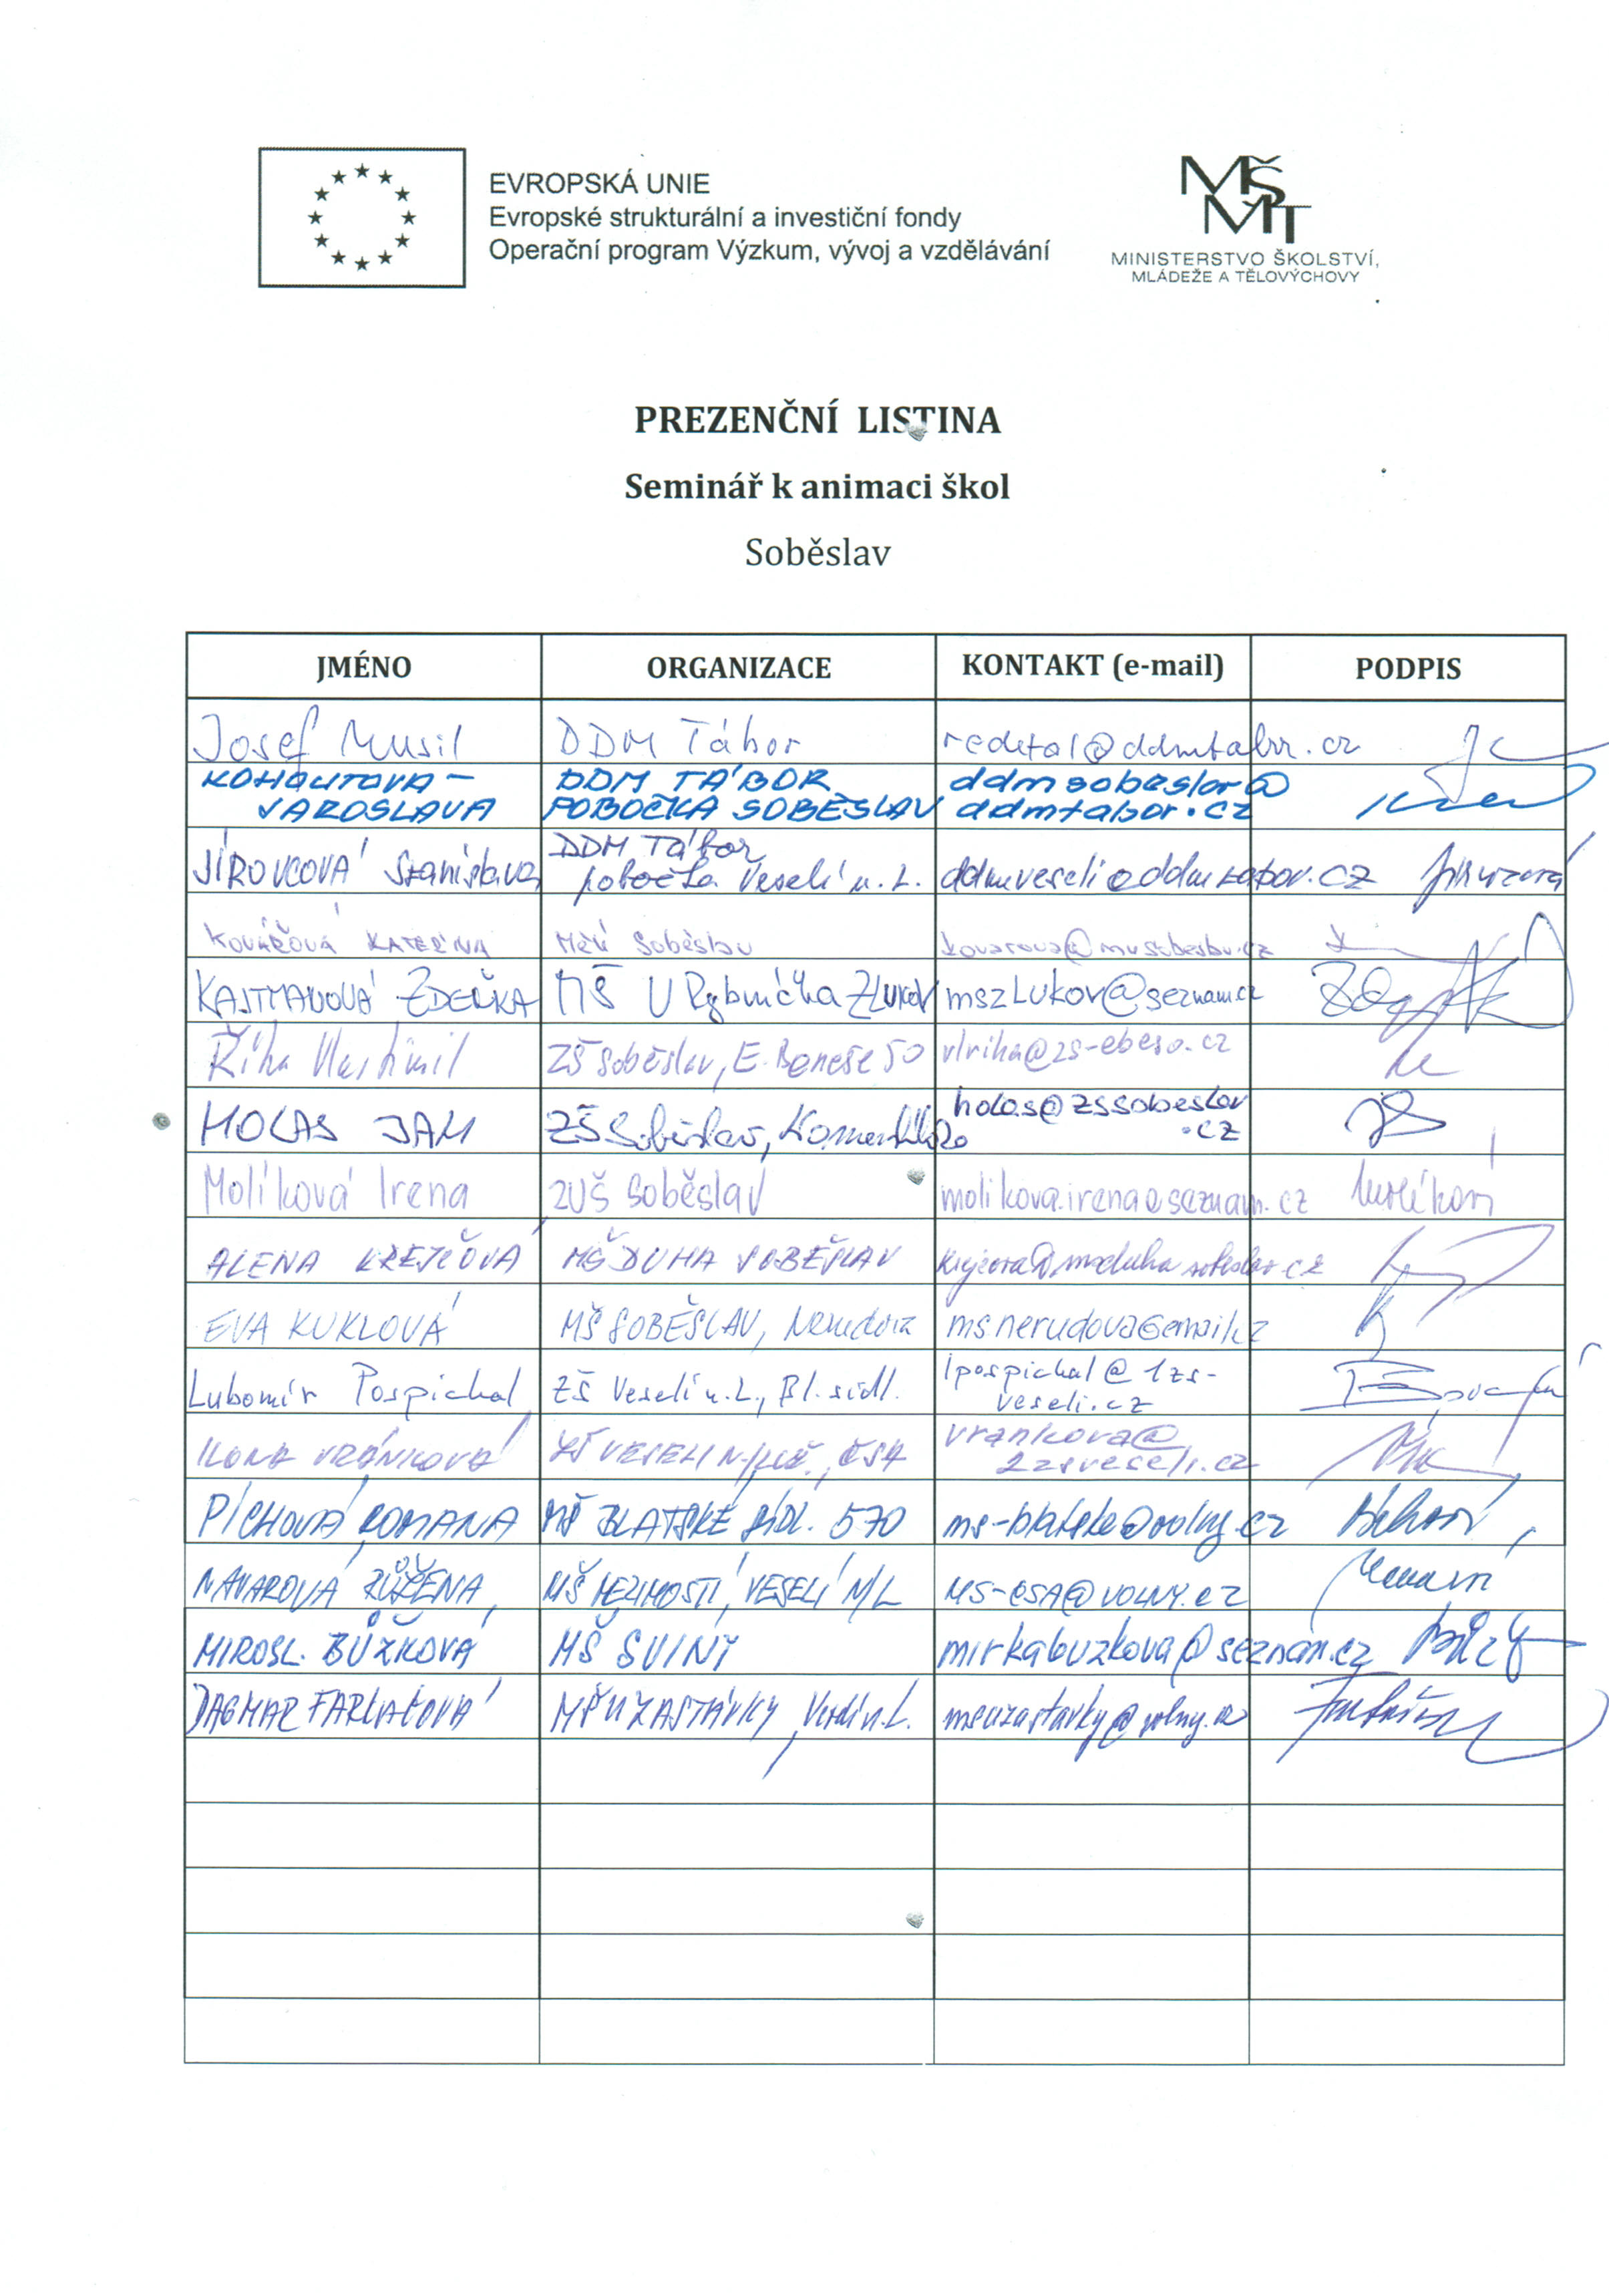 EVROPSKÁ UNIE
Evropské strukturální a investiční fondy
Operační program Výzkum, vývoj a vzdělávání
MŠMT
MINISTERSTVO ŠKOLSTVÍ,
MLÁDEŽE A TĚLOVÝCHOVY
PREZENČNÍ LISTINA
Seminář k animaci škol
Soběslav
JMÉNO ORGANIZACE KONTAKT (e-mail) PODPIS
Josef Musil DDM Tábor
KOHOUTOVA – DDM TÁBOR ddmsobeslav@
JAROSLAVA POBOČKA SOBĚSLAV ddmtabor.cz
DDM Tábor
JÍROVCOVÁ Stanislava pobočka Veselí n. L. ddmveseli@ddmtabor.cz
KOVÁŘOVÁ KATEŘINA Soběslav
ZDEŇKA MŠ U Rybníčka ZLUKOV mszLukov@seznam.cz
Říha Vlastimil ZŠ Soběslav, E. Beneše 50 vlriha@zs-ebeso.cz
HOLAS JAN ZŠ Soběslav, Komenského holas@zssobeslav
.cz
Molíková Irena ZUŠ Soběslav molikova.irena@seznam.cz
ALENA KREJČOVÁ MŠ DUHA SOBĚSLAV
EVA KUKLOVÁ MŠ SOBĚSLAV, Nerudova ms.nerudova@email.cz
Lubomír Pospíchal ZŠ Veselí n. L., Bl. sídl. lpospichal@1zs-
veseli.cz
ILONA VRÁNKOVÁ ZŠ VESELÍ N/LUŽ., ČSA vrankova@
2zsveseli.cz
PÍCHOVÁ ROMANA MŠ BLATSKÉ SÍDL. 570 ms-blatske@volny.cz
NAVAROVÁ RŮŽENA, MŠ MEZIMOSTÍ, VESELÍ N/L MS-CSA@VOLNY.CZ
MIROSL. BŮŽKOVÁ MŠ SVINY mirkabuzkova@seznam.cz
DAGMAR MŠ U ZASTÁVKY, Veselí n. L. msuzastavky@volny.cz